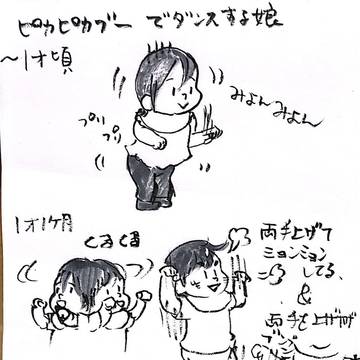 ピカピカブー でダンスする娘
〜1才頃
みよんみよん
プリ
プリ
1才1ヶ月
くるくる
両手上げて
ミョンミョン
してる。
&
両手を上げながら